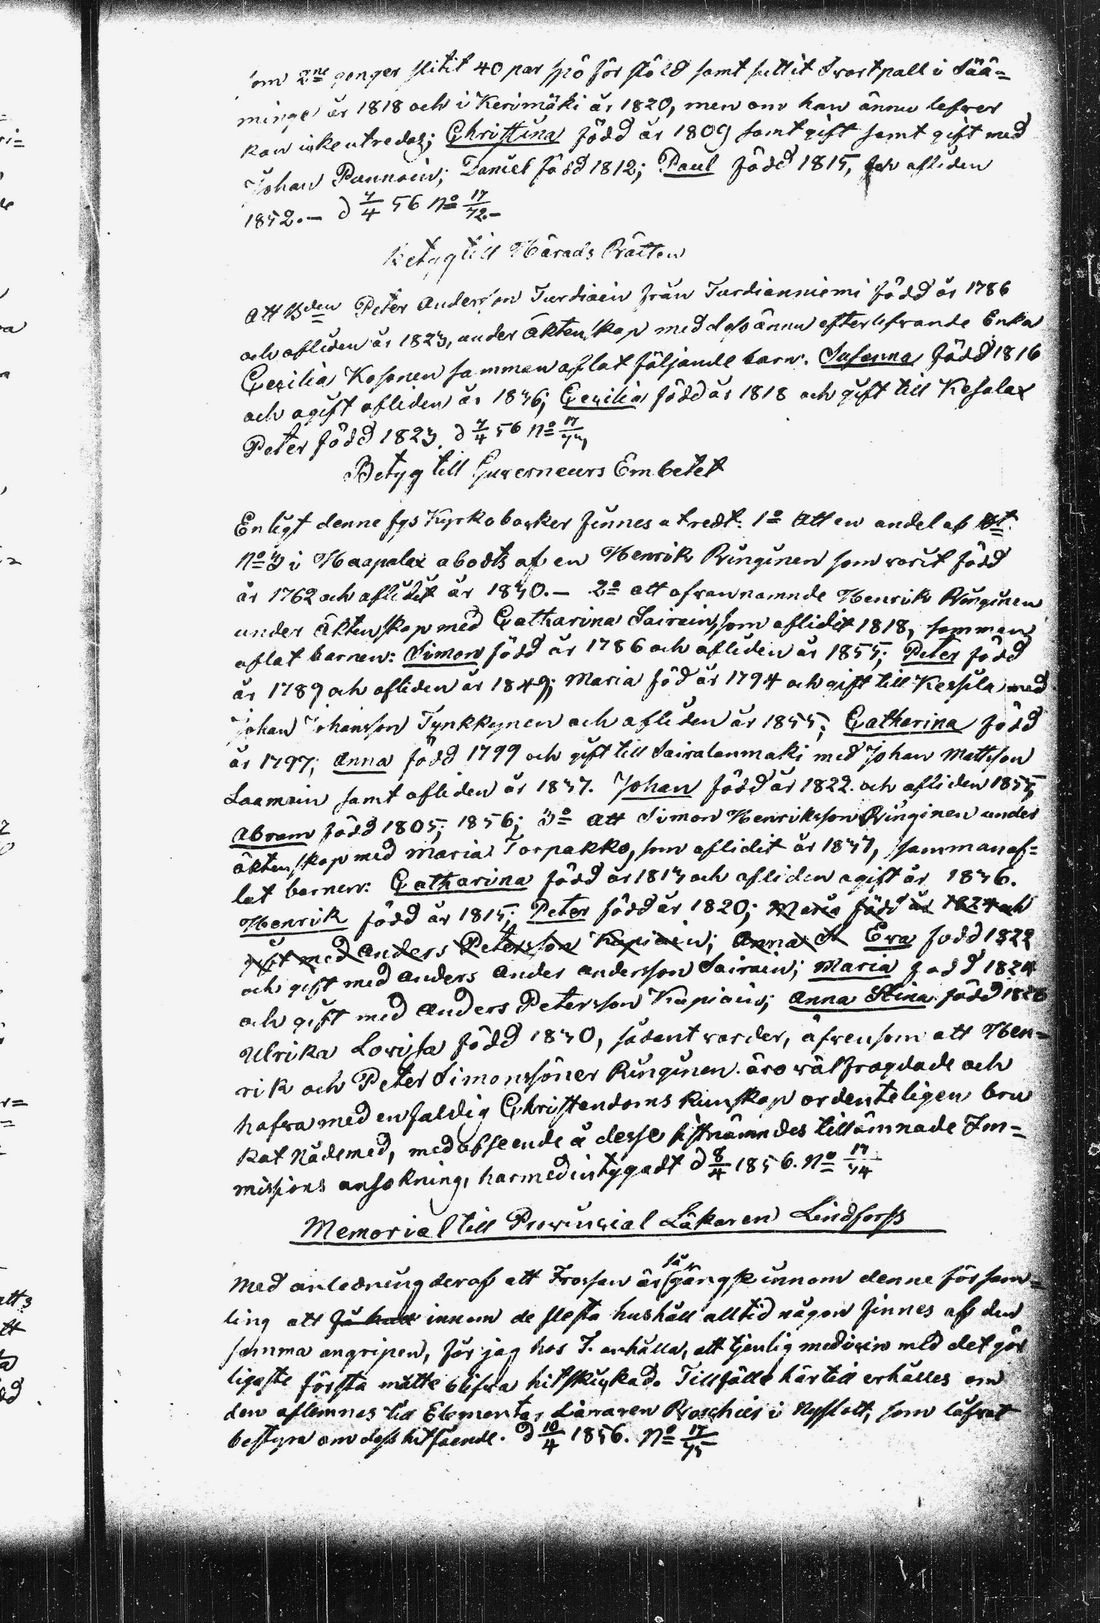 som 2ne gånger slitit 40 par spö för stöld samt suttit Svartpall i Sää=
minge år 1818 och i Kerimäki år 1820, men om han ännu lefver
kan icke utredas; Christina född år 1809 samt gift samt gift med
Johan Punnoin; Daniel född 1812; Paul född 1815, afliden
1852.— d 7/4 56 No 17/72.—
Betyg till Härads Rätten
Att Bden Peter Andersson Turdiain från Turdianniemi född år 1786
och afliden år 1823, under äktenskap med dess ännu efterlefvande Enka
Cecilia Kosonen sammanaflat följande barn. Susanna född 1816
och ogift afliden år 1836; Cecilia född år 1818 och gift till Kesälax
Peter född 1823. d 7/4 56 No 17/73
Betyg till Guverneurs Embetet
Enligt denne fgs Kyrkoböcker finnes utredt: 1o Att en andel af
No 3 i Haapalax åbodts af en Henrik Ringinen som varit född
år 1762 och aflidit år 1830.— 2o att ofvannämnde Henrik Ringinen
under äktenskap med Catharina Sairain, som aflidit 1818, samman
aflat barnen: Simon född år 1786 och afliden år 1855; Peter född
år 1789 och afliden år 1849; Maria föd år 1794 och gift till Kessila med
Johan Johansson Tynkkynen och afliden år 1855; Catharina född
år 1797; Anna född 1799 och gift till Sairalanmäki med Johan Mattsson
Laamain samt afliden år 1837. Johan född år 1822. och afliden 1855,
Abram född 1805; 1856; 3o Att Simon Henriksson Ringinen under
äktenskap med Maria Torpakko, som aflidit år 1837, sammanaf=
lat barnen: Catharina född år 1813 och afliden ogift år 1836.
Henrik född år 1815; Peter född år 1820; Maria född år 1824 och
gift med Anders Petersson Kapiain; Anna St Eva född 1822
och gift med Anders Ander Andersson Sairain; Maria född 1824
och gift med Anders Petersson Kapiain; Anna Stina född 1826
Ulrika Lovisa född 1830, sådant varder, äfvensom att Hen=
rik och Peter Simonssöner Ringinen äro välfrägdade och
hafva med enfaldig Christendoms kunskap ordenteligen bru
kat Nådemed, med afseende å desse sistnämndes tillämnade Im=
missions ansökning, härmed intygadt d 8/4 1856. No 17/74
Memorial till Provincial Läkaren Lindforss
Med anledning deraf att Frossan är så gängse innom denne försam=
ling att få hus innom de flesta hushåll alltid någon finnes af den
samma angripen, får jag hos T. anhålla, att tjenlig medicin med det gör
ligaste första måtte blifva hitskickad. Tillfälle härtill erhålles om
den aflemnas till Elementar Läraren Roschier i Nyslott, som låfvat
bestyra om dess hitsående. d 10/4 1856. No 17/75